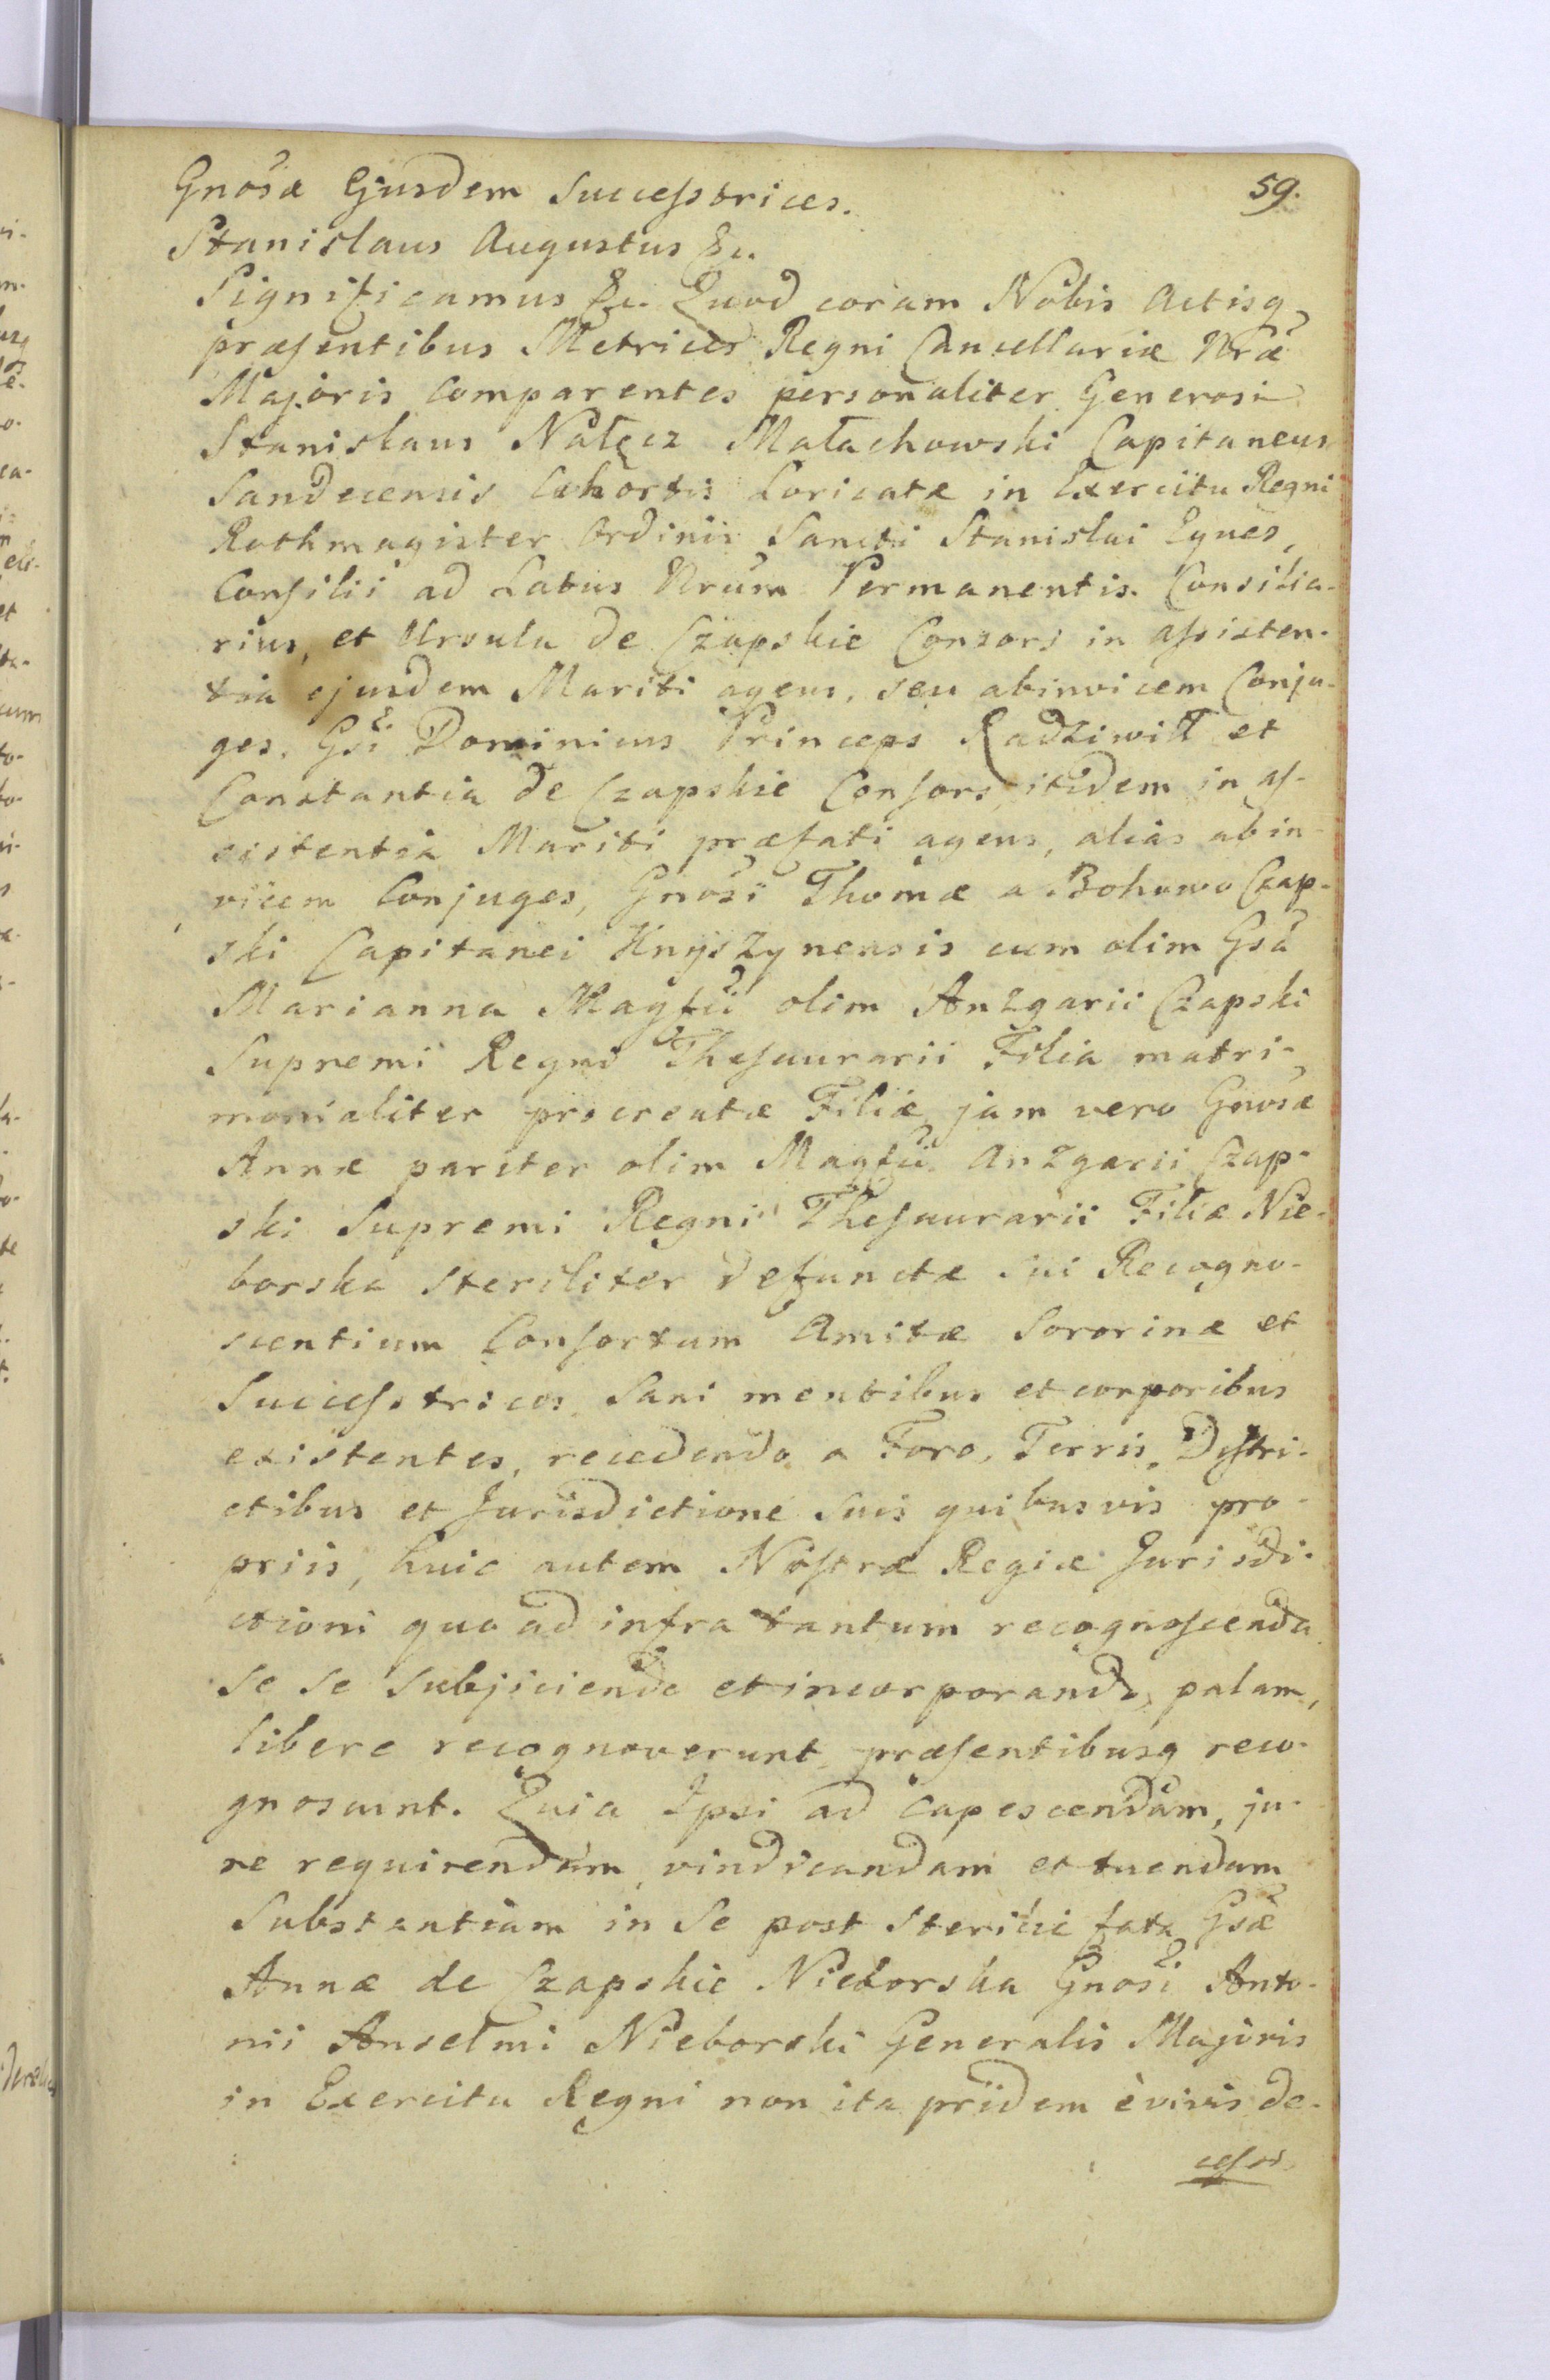 59.
Gnosæ Ejusdem Successtrices.
Stanislaus Augustus &c.
Significamus &c. Quod coram Nobis Actisq
præsentibus Metrices Regni Cancellariæ Nræ
Majoris comparentes personaliter Generosi
Stanislaus Nałęcz Małachowski Capitaneus
Sandecensis Cohortis Loricatæ in Exercitu Regni
Rothmagister Ordinis Sancti Stanislai Eques,
Consilii ad Latus Nrum Permanentis Consilia-
rius, et Ursula de Czapskie Consors in assisten-
tia ejusdem Mariti agens, seu abinvicem Conju-
ges, Gsi Dominicus Princeps Radziwiłł et
Constantia de Czapskie Consors itidem in as-
sistentia Mariti præfati agens, alias abin-
vicem Conjuges, Gnosi Thomæ a Bohowo Czap-
ski Capitanei Knyszynensis cum olim Gsa
Marianna Magfii olim Anzgarii Czapski
Supremi Regni Thesaurarii Filia matri-
monialiter procreatæ Filiæ, jam vero Gnosæ
Annæ pariter olim Magfii Anzgarii Czap-
ski Supremi Regni Thesaurarii Filiæ Nie-
borska steriliter defunctæ sui Recogno-
scentium Consortum Amitæ Sororinæ et
Successtrices, Sani mentibus et corporibus
existentes, recedendo a Foro, Terris, Distri-
ctibus et Jurisdictione suis quibusvis pro-
priis, huic autem Nostræ Regiæ Jurisdi-
ctioni quo ad infra tantum recognoscenda
se se subjiciendo et incorporando, palam,
libere recognoverunt præsentibusq reco-
gnoscunt. Quia Ipsi ad capescendam, ju-
re requirendam, vindicandam et tuendam
Substantiam in se post sterilie fata Gsæ
Annæ de Czapskie Nieborska Gnosi Anto-
nii Anselmi Nieborski Generalis Majoris
in Exercitu Regni non ita pridem è vivis de-